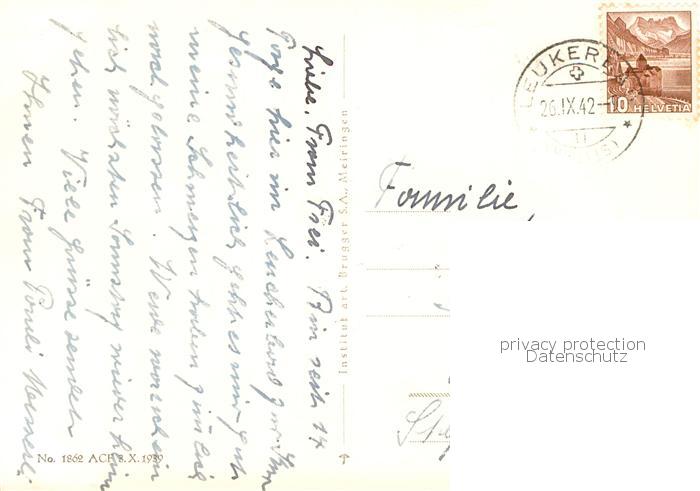 Liebe, Frau Frei. Bin seit 14
Tage hier im Leukerbad zur Kur
Gesundheitlich geht es mir gut
meine Schmerzen haben ziemlich
nachgelassen. Werde
nächsten Samstag wieder heim
gehen. Viele Grüsse sendet
Ihnen Frau
No. 1862 ACF 8. X. 1939
Institut art. Brugger S.A., Meiringen
LEUKERBAD
26.IX.42
10 HELVETIA
Familie,
privacy protection
Datenschutz